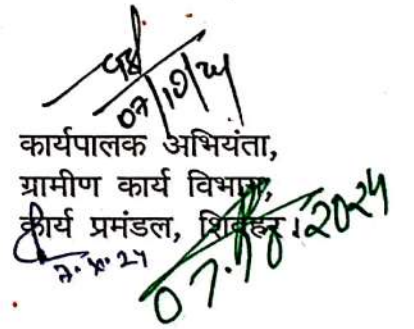 07/10/24
कार्यपालक अभियंता,
ग्रामीण कार्य विभाग,
कार्य प्रमंडल, शिवहर।
7.10.24
07.10.2024